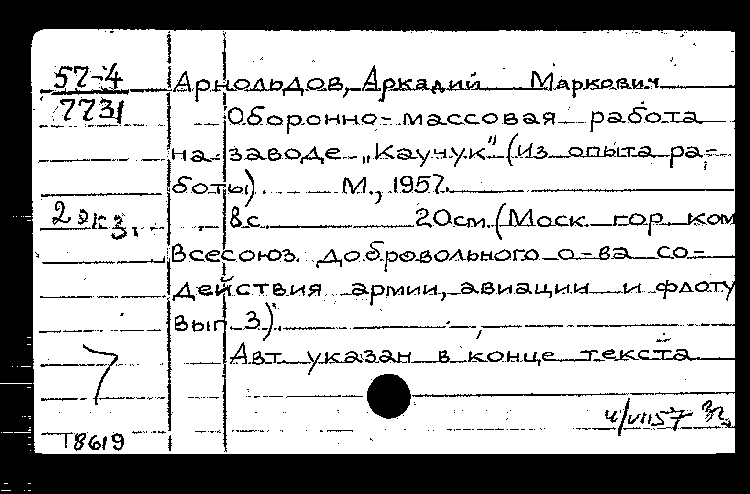 57-4 Арнольдов, Аркадий Маркович
7731 Оборонно-массовая работа
на заводе „Каучук" (из опыта ра-
боты). М., 1957.
2 экз. 8с. 20см. (Моск. гор. ком
Всесоюз. добровольного о-ва со-
действия армии, авиации и флоту
вып. 3).
Авт. указан в конце текста
7
4/VII57
18619